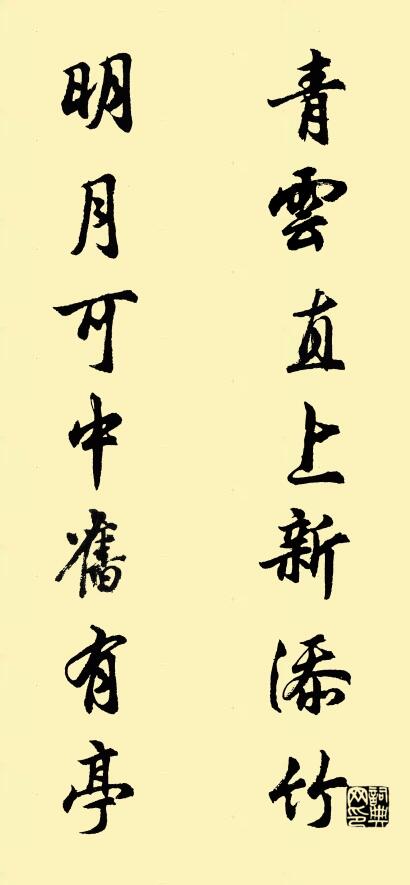 青雲直上新添竹
明月可中舊有亭
詞典網印